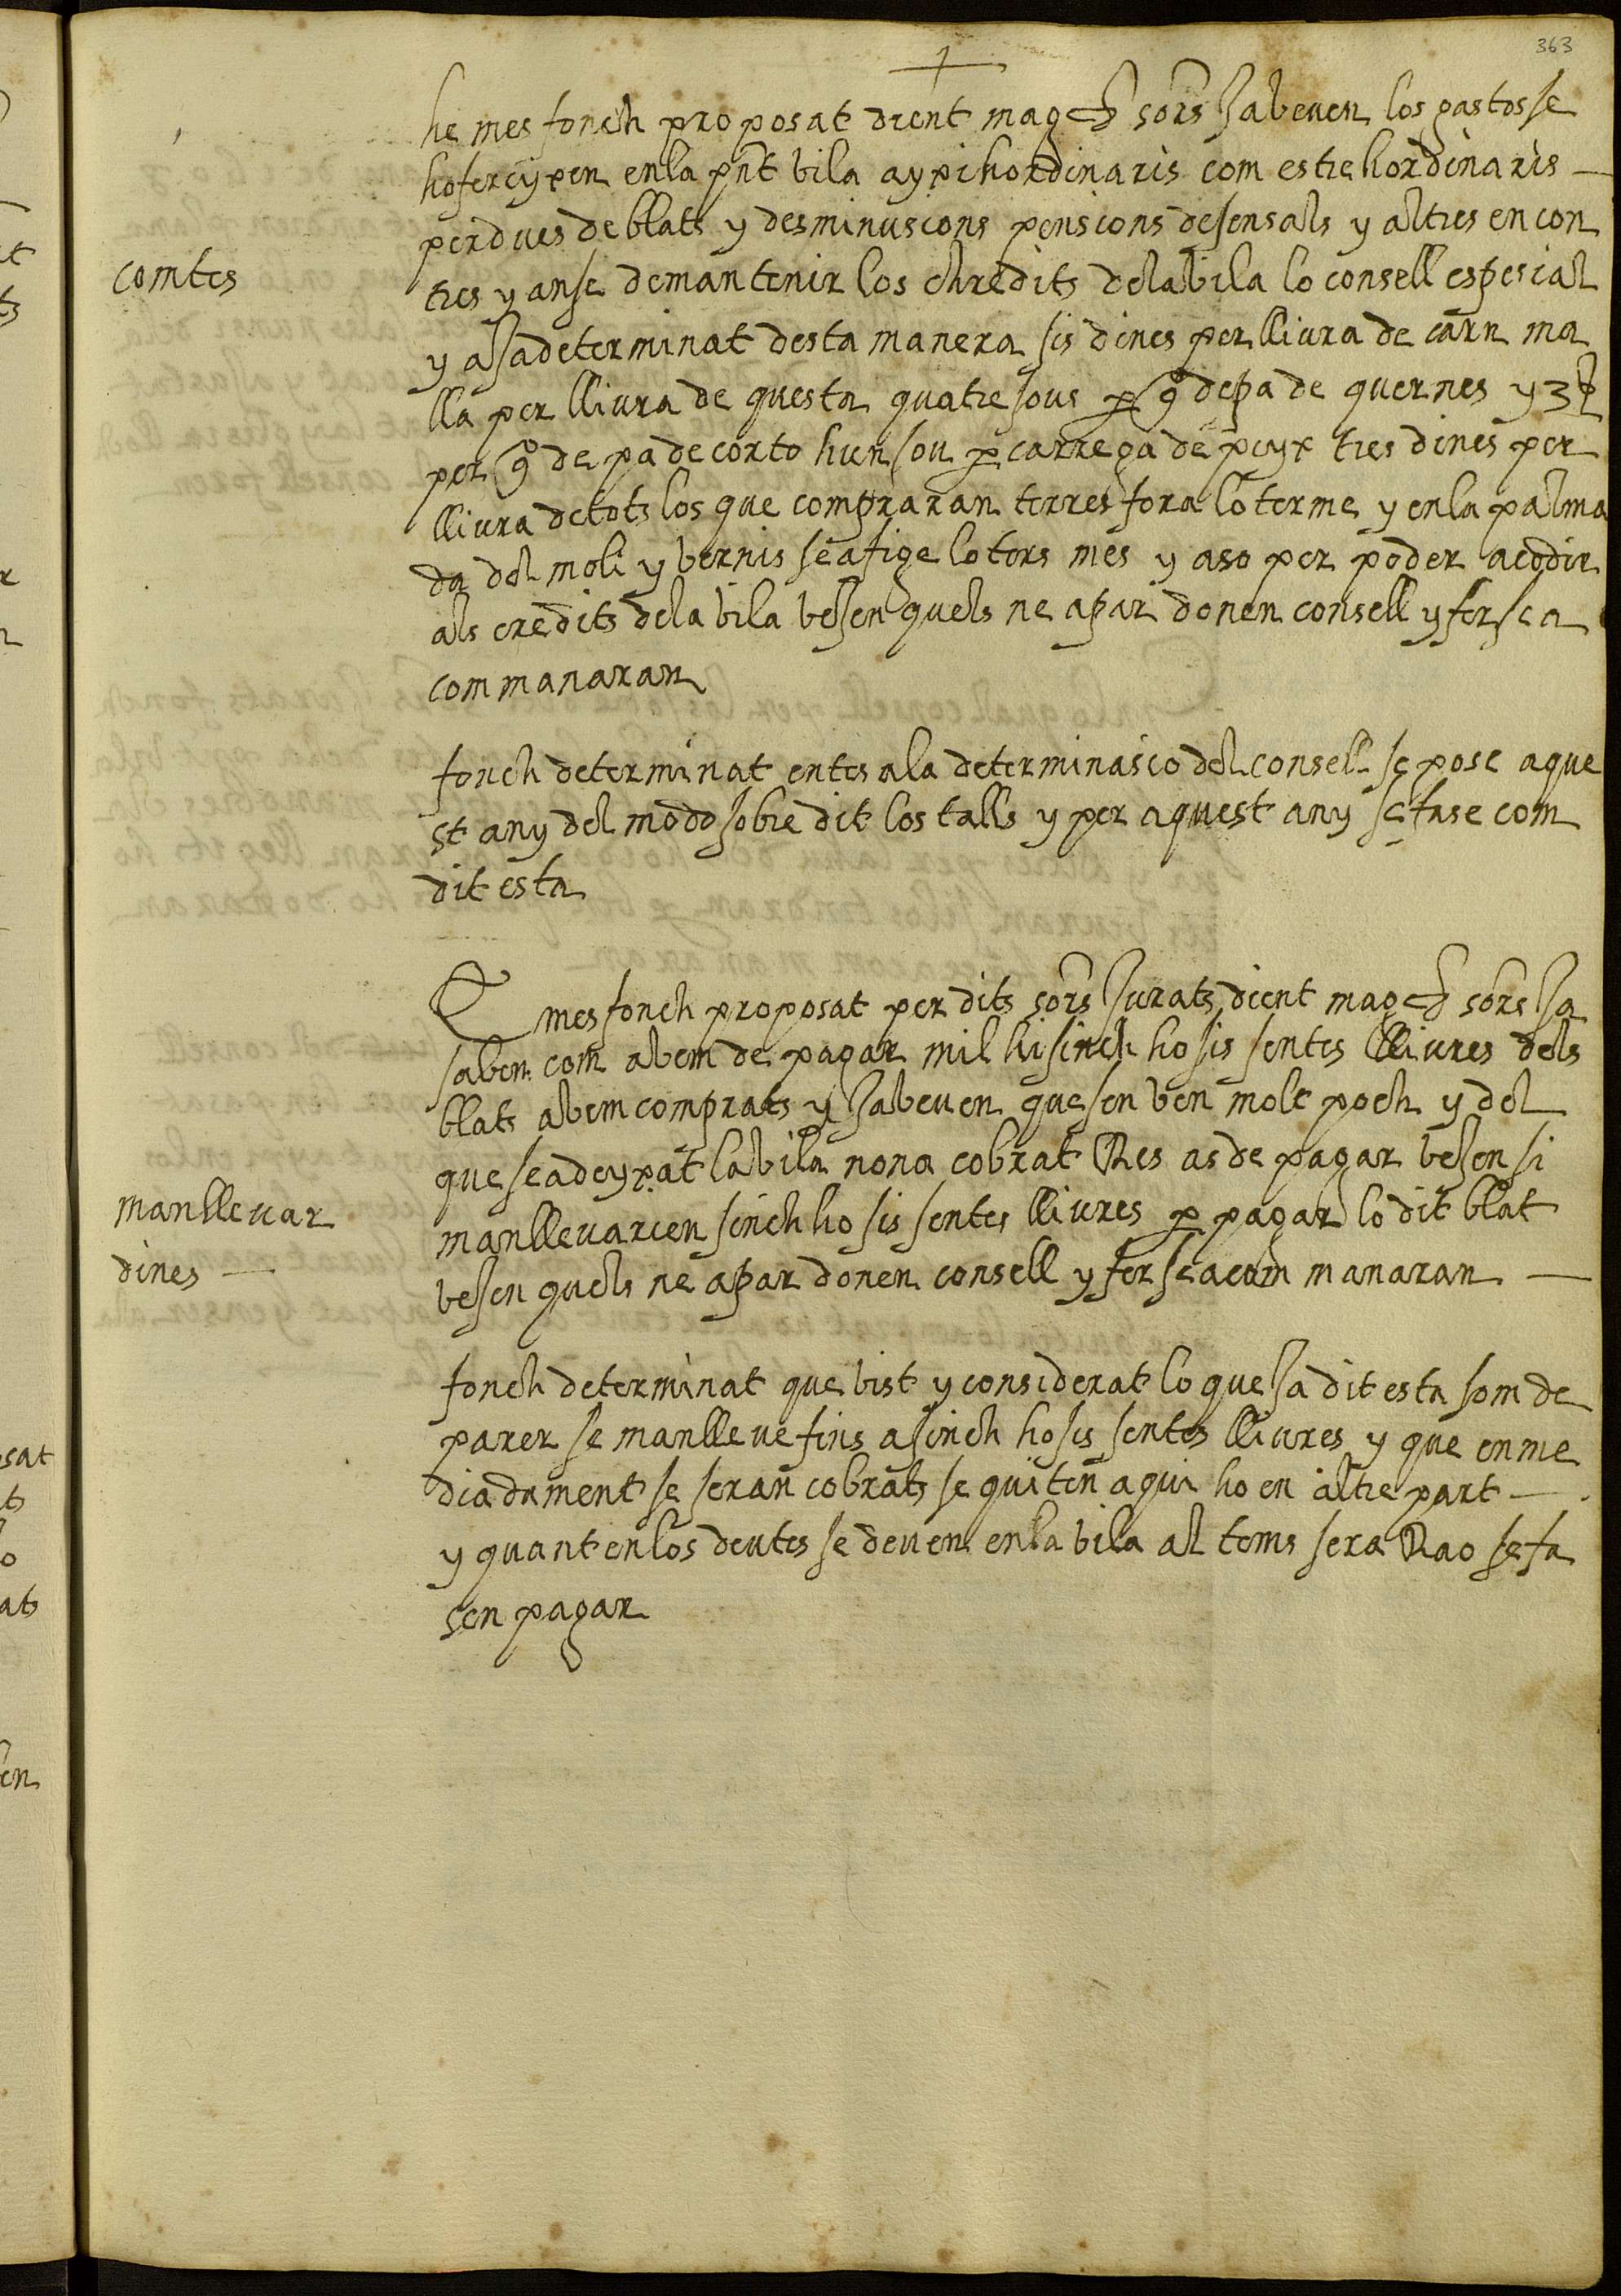 363
he mes fonch proposat dient mag.chs sors ja beuen los gastos se
hofereyxen en la pnt bila ayxi hordinaris com estrehordinaris —
comtes
perdues de blats y desminusions pensions de sensals y altres encon
tres y anse de mantenir los chredits de la bila lo consell espesial
y a ja determinat desta manera sis dines per lliura de carn ma
lla per lliura de questa quatre sous per qo de pa de quernes y 3 s
per qo de pa de corto hun sou per carrega de peyx tres dines per
lliura de tots los que compraran terres fora lo terme y en la palma
da del moli y bernis se afige lo ters mes y aso per poder acodir
als credits de la bila besen quels ne apar donen consell y fer sea
com manaran
fonch determinat entes a la determinasio del consell se pose aque
st any del modo sobredit los talls y per aquest any se fase com
dit esta
E mes fonch proposat per dits sors jurats dient mag.chs sors ja
saben com abem de pagar mil hi sinch ho sis sentes lliures dels
blats abem comprats y ja beuen que sen ben molt poch y del
que se a deyxat la bila nona cobrat Res as de pagar besen si
manllevar
dines —
manllevarien sinch ho sis sentes lliures per pagar lo dit blat
besen quels ne apar donen consell y fer sea com manaran —
fonch determinat que bist y considerat lo que ja dit esta som de
parer se manlleve fins a sinch ho sis sentes lliures y que enme
diadament se seran cobrats se quiten aqui ho en altre part —
y quant en los deutes se deuen en la bila al tems sera Rao se fa
sen pagar